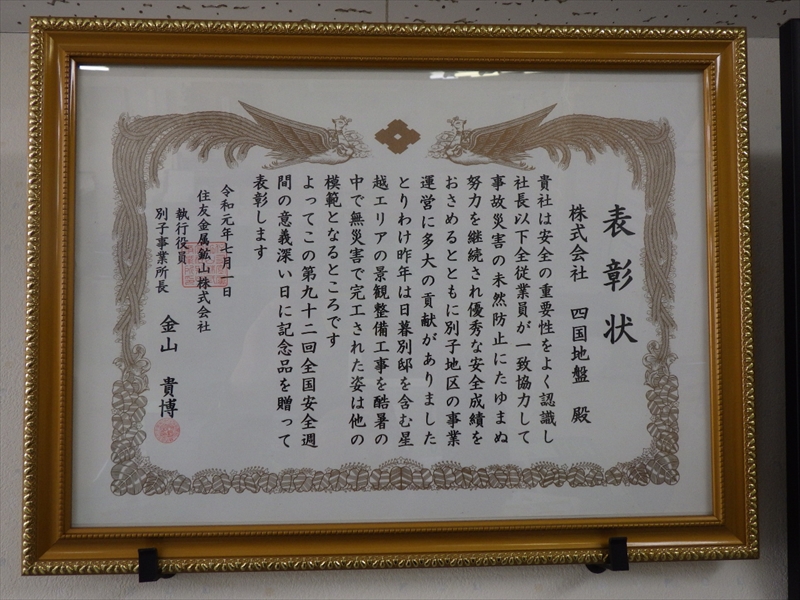 表彰状
株式会社 四国地盤 殿
貴社は安全の重要性をよく認識し
社長以下全従業員が一致協力して
事故災害の未然防止にたゆまぬ
努力を継続され優秀な安全成績を
おさめるとともに別子地区の事業
運営に多大の貢献がありました
とりわけ昨年は日暮別邸を含む星
越エリアの景観整備工事を酷暑の
中で無災害で完工された姿は他の
模範となるところです
よってこの第九十二回全国安全週
間の意義深い日に記念品を贈って
表彰します
令和元年七月一日
住友金属鉱山株式会社
執行役員
別子事業所長 金山 貴博